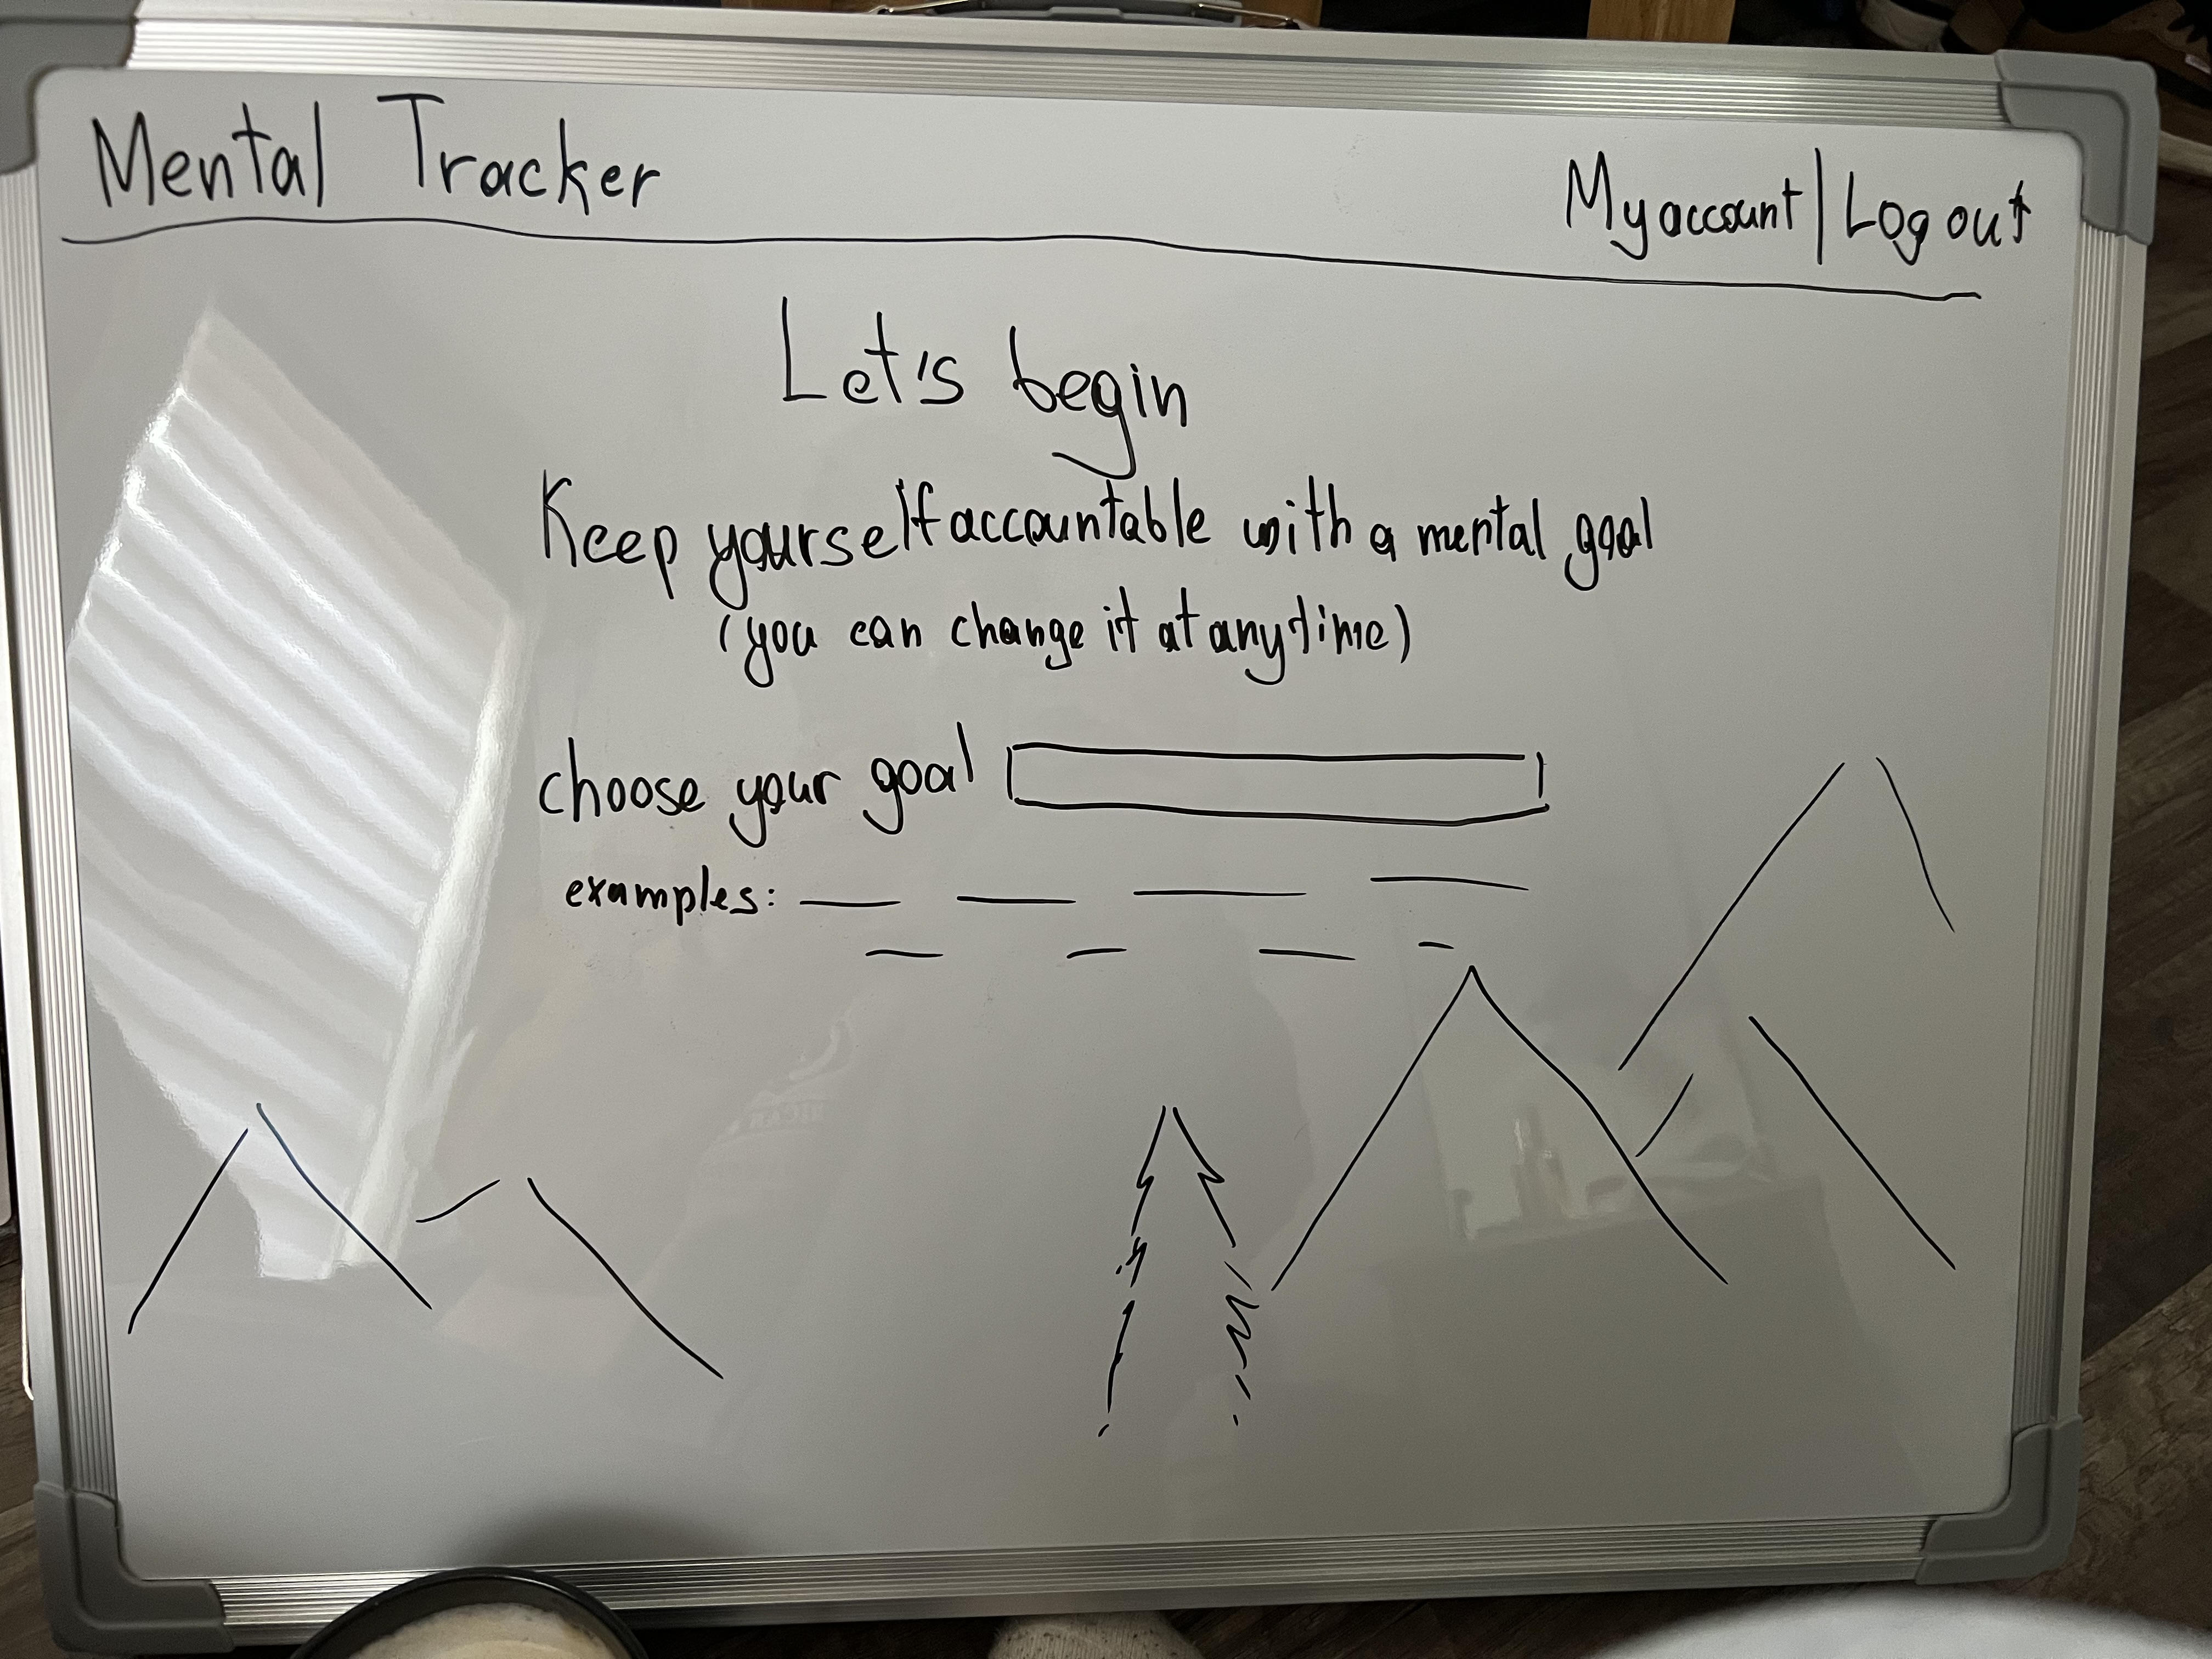 Mental Tracker
My account | Log out
Let's begin
Keep yourself accountable with a mental goal
(you can change it at anytime)
choose your goal
examples: